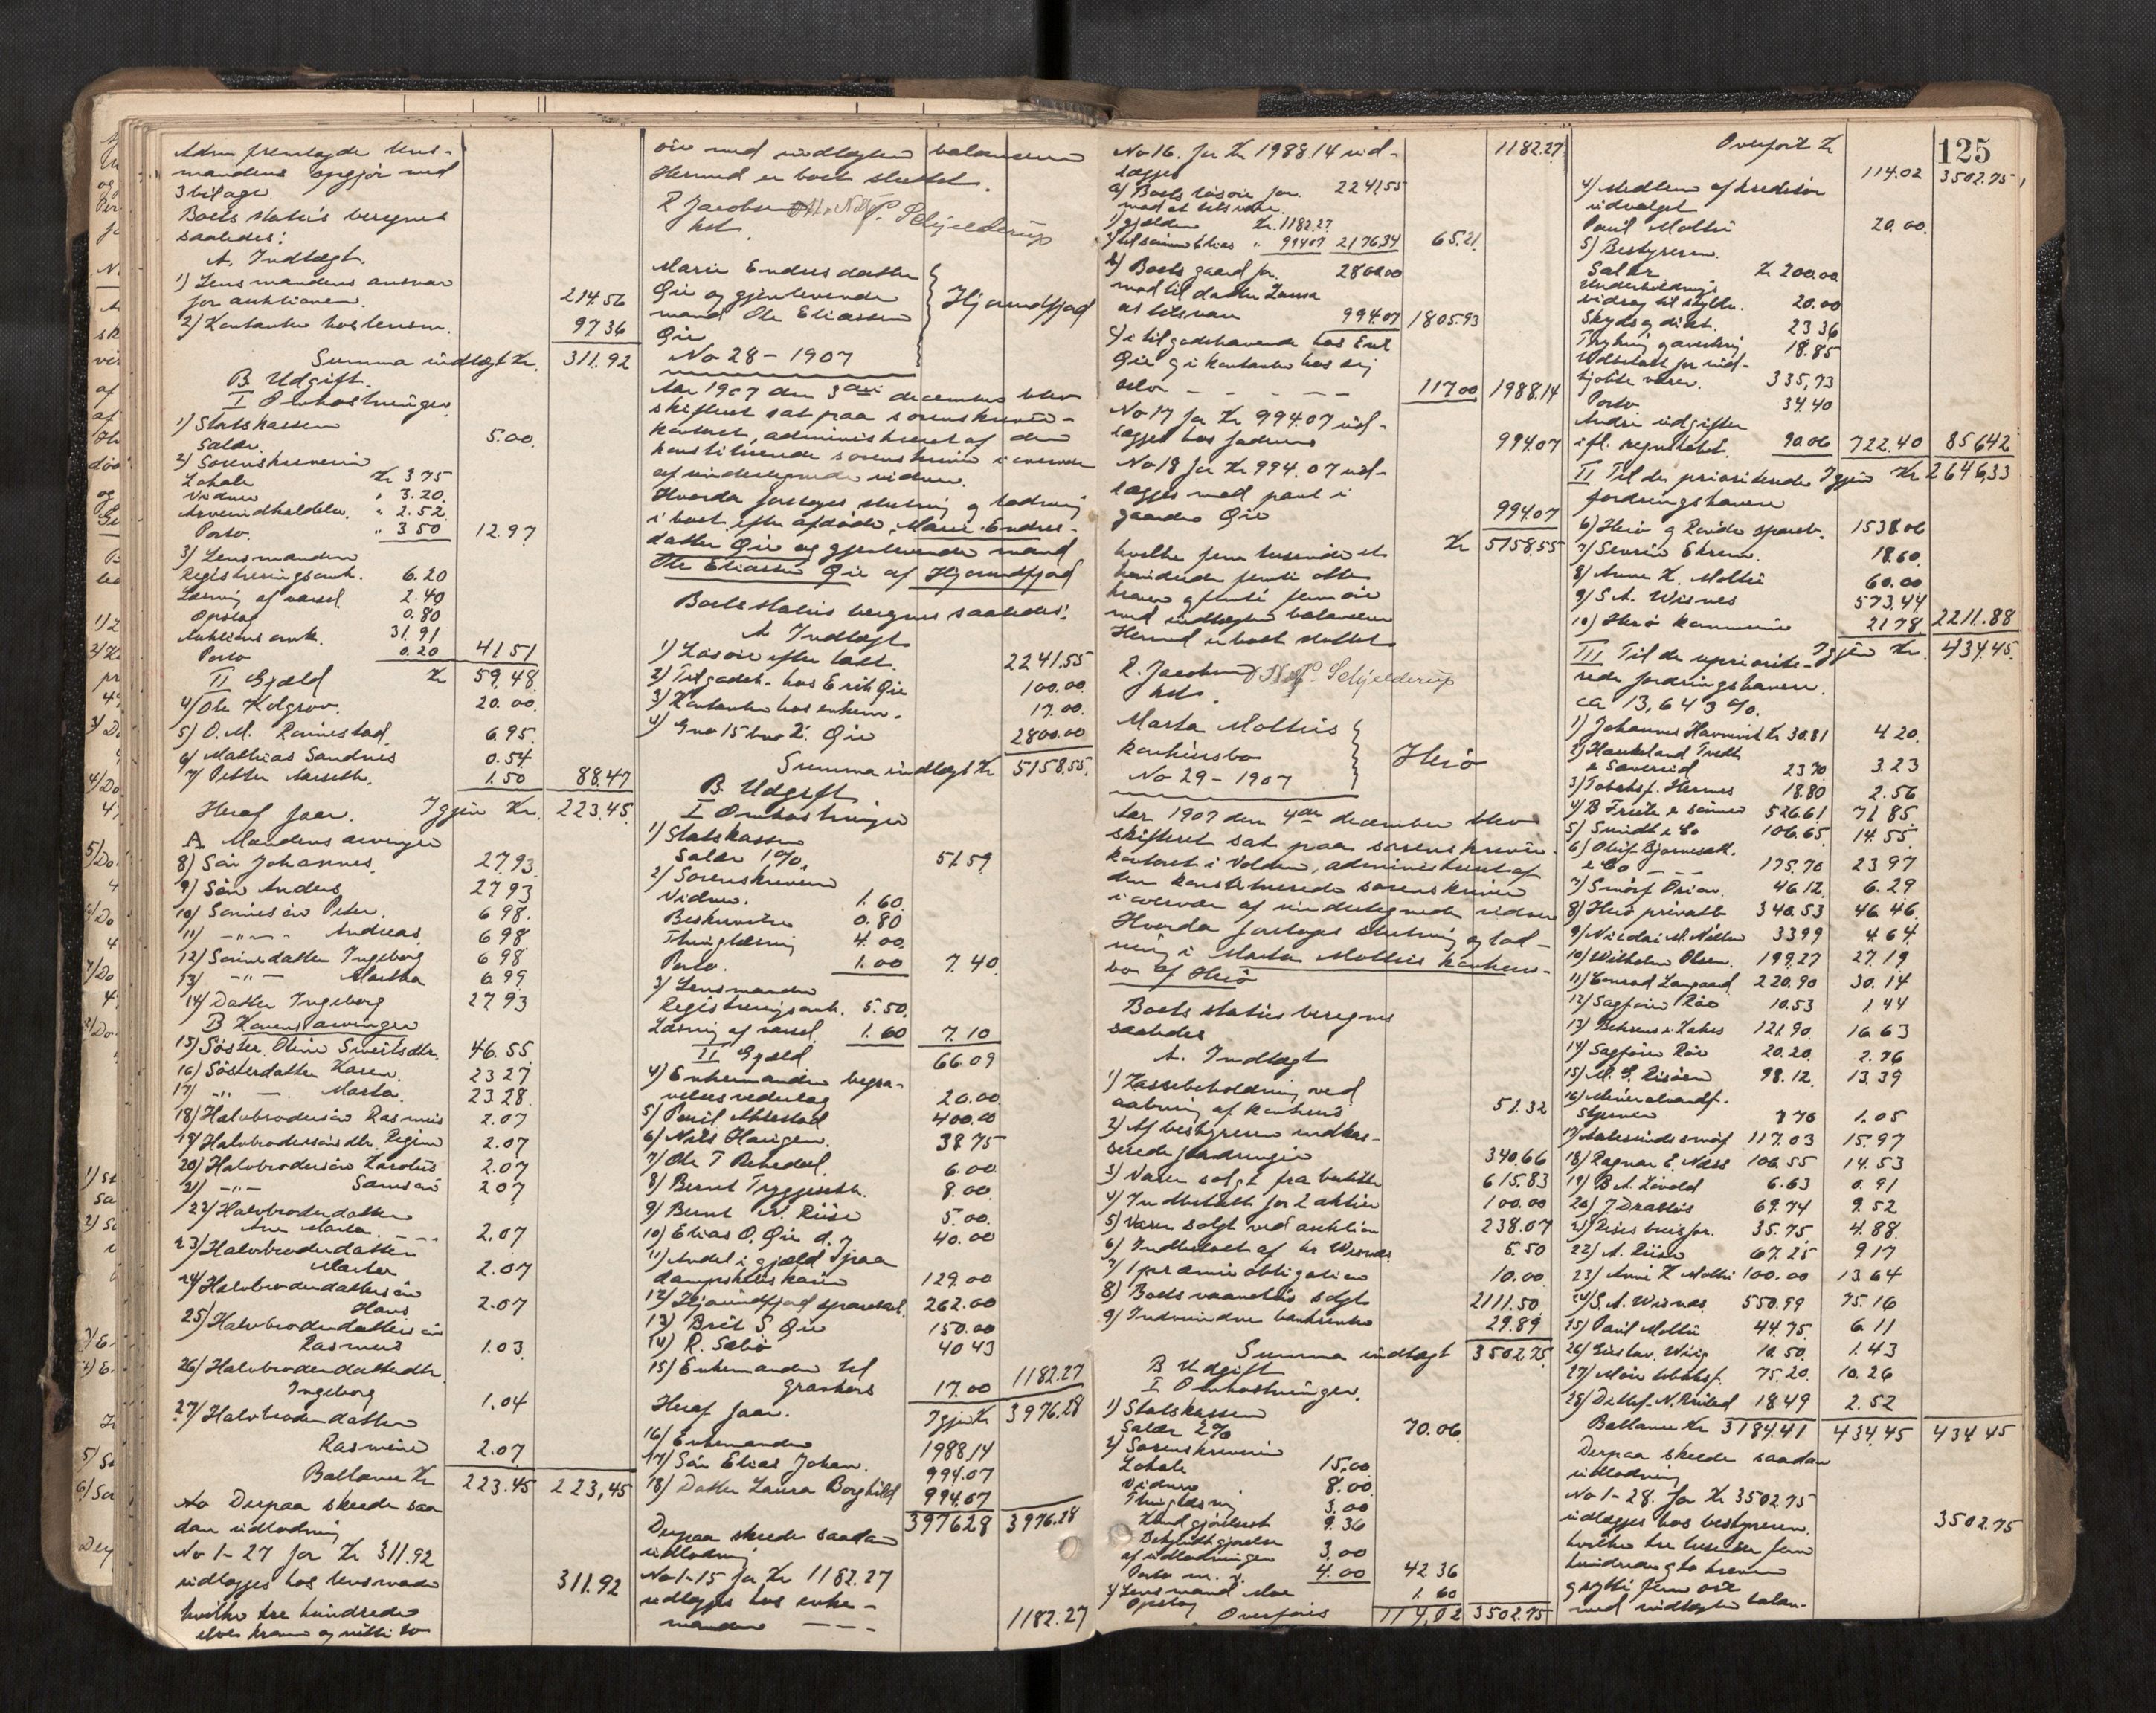 Adm fremlagde lens-
mandens opgjør med
3 bilage
Boets status beregnes
saaledes:
A. Indtægt.
1) Lensmandens ansvar
for auktionen. 214.56
2) Kontanter hos lensm. 97 36
Summa indtægt Kr. 311.92
B. Udgift.
I Omkostninger
1) Statskassen
Salær. 5.00
2) Sorenskriveren
Lokale Kr 3 75
Vidner " 3.20
Arvemeddelelse. " 2.52
Porto. " 3 50 12.97
3) Lensmanden
Registreringsomk. 6.20
Læsning af varsel 2.40
Opslag 0.80
Auktions omk. 31.91
Porto 0.20 41 51
II Gjæld Kr 59.48
4) Ole Kolgrov. 20.00
5) O. M. Ramstad. 6 95
6) Mathias Sandnes 0.54
7) Petter Aarseth. 1.50 88.47
Heraf faar. Igjen Kr. 223.45
A. Mandens arvinger
8) Søn Johannes. 27 93
9) Søn Anders 27 93
10) Sønnesøn Peter. 6 98
11) -"-"- Andreas 6 98
12) Sønnedatter Ingeborg 6 98
13) -"-"- Martha 6.99
14) Datter Ingeborg 27 93
B Konens arvinger
15) Søster Oline Sivertsdtr. 46.55
16) Søsterdatter Karen. 23 27
17) -"- — Marta. 23 28
18) Halvbrodersøn Rasmus 2.07
19) Halvbrodersøns dtr. Regine 2.07
20) Halvbrodersøn Karolus 2.07
21) -"- Samson 2 07
22) Halvbroderdatter
Ane Marta. - - - 2.07
23) Halvbroderdatter
Marte 2.07
24) Halvbroderdattersøn
Hans 2.07
25) Halvbroderdattersøn
Rasmus 1.03
26) Halvbroderdatterdtr.
Ingeborg 1.04
27) Halvbroderdatter
Rasmine 2.07
Ballance Kr 223.45 223,45
Derpaa skeede saa
dan udlodning
No 1-27 for Kr 311.92
udlægges hos lensmanden 311.92
hvilke tre hundrede
elve kroner og nitti to
øre med indtægten balancerer
Hermed er boet sluttet.
R Jacobsen P. Schjelderup
kst.
Marie Endresdatter
Øie og gjenlevende
mand Ole Eliassen
Øie
No 28 - 1907
Hjørundfjord
Aar 1907 den 3die december blev
skifteret sat paa sorenskriver-
kontoret, administreret af den
konstituerede sorenskriver i overvær
af undertegnede vidner.
Hvorda foretoges slutning og lodning
i boet efter afdøde Marie Endres-
datter Øie og gjenlevende mand
Ole Eliassen Øie af Hjørundfjord
Boets status beregnes saaledes:
A Indtægt
1) Løsøre efter takt. 2241.55
2) Tilgodeh. hos Erik Øie 100.00
3) Kontanter hos enkem. 17.00
4) Gno 15 bno 2. Øie 2800.00
Summa indtægt Kr 5158.55
B. Udgift
I Omkostninger
1) Statskassen
Salær 1%. 51 59
2) Sorenskriveren
Vidner. 1.60
Beskrivelse 0.80
Thinglæsning 4.00
Porto. 1.00 7.40
3) Lensmanden
Registreringsomk. 5.50
Læsning af varsel 1.60 7.10
II Gjæld 66 09
4) Enkemanden begra-
velsesvederlag 20.00
5) Poul Aklestad 400.00
6) Nils Haugen. 38 75
7) Ole T Rebedal. 6.00
8) Bernt Tryggestad. 8.00
9) Bernt N. Riise 5.00
10) Elias O. Øie d. y. 40.00
11) Andel i gjæld paa
dampskibskaien 129.00
12) Hjørundfjord sparekas. 262.00
13) Brit S. Øie 150.00
14) R. Sæbø 40 43
15) Enkemanden til
gravkors 17.00 1182.27
Heraf faar. Igjen Kr 3976.28
16) Enkemanden 1988 14
17) Søn Elias Johan. 994.07
18) Datter Laura Borghild 994.07
3976 28 3976.28
Derpaa skeede saadan
udlodning
No 1-15 for Kr 1182.27
udlægges hos enke-
manden - - - 1182.27
No 16. for Kr 1988.14 ud- 1182.27
lægges
a) Boets løsøre for. 2241 55
mod at tilsvare
1) gjælden Kr. 1182.27
2) til sønnen Elias " 994 07 2176.34 65.21
b) Boets gaard for. 2800.00
mod til datter Laura
at tilsvare 994.07 1805.93
c) i tilgodehavende hos Erik
Øie og i kontanter hos sig
selv - - - - - 117 00 1988.14
No 17 for Kr 994.07 ud-
lægges hos faderen 994.07
No 18 for Kr 994.07 ud-
lægges med pant i
gaarden Øie 994.07
hvilke fem tusinde et Kr 5158.55
hundrede femti otte
kroner og femti fem øre
med indtægten balancerer
Hermed er boet sluttet
R. Jacobsen P. Schjelderup
kst.
Marta Moltus
konkursbo
No 29 - 1907
Herø
Aar 1907 den 4de december blev
skifteret sat paa sorenskriver-
kontoret i Volden, administreret af
den konstituerede sorenskriver
i overvær af undertegnede vidner
Hvorda foretoges slutning og lod-
ning i Marta Moltus konkurs-
bo af Herø
Boets status beregnes
saaledes
A. Indtægt
1) Kassebeholdning ved
aabning af konkurs 51.32
2) Af bestyreren indkas-
serede fordringer 340.66
3) Varer solgt fra butikken 615.83
4) Indbetalt for 2 aktier 100.00
5) Varer solgt ved auktion 238.07
6) Indbetalt af hr Wisnes 5.50
7) 1 præmieobligation 10.00
8) Boets vaanehus solgt 2111.50
9) Indvundne bankrenter 29.89
Summa indtægt 3502.75
B Udgift
I Omkostninger.
1) Statskassen
Salær 2% 70.06
2) Sorenskriveren
Lokale 15.00
Vidner. 8.00
Thinglæsning 3.00
Kundgjørelser 9.36
Bekjendtgjørelse
af udlodningen 3.00
Porto m. v. 4.00 42 36
3) Lensmand Moe
Opslag 1.60
Overføres 114,02 3502.75
125
Overført Kr 114.02 3502.75
4) Medlem af kreditor
udvalget
Poul Moltu 20.00
5) Bestyreren.
Salær Kr 200.00
Underholdnings
bidrag til skyldn. 20.00
Skyds og diæt. 23 36
Trykning og avertering 18.85
Udbetalt for ind-
kjøbte varer. 335,73
Porto 34.40
Andre udgifter
ifl. regnskabet. 90.06 722.40 856 42
II Til de prioriterede Igjen Kr 2646,33
fordringshavere
6) Herø og Røvde spareb. 1538.06
7) Severin Ekrem. 18.60
8) Anne K. Moltu 60.00
9) S. A. Wisnes 573.44
10) Herø kommune 21 78 2211.88
III Til de upriorite- Igjen Kr. 434.45
rede fordringshavere.
ca 13,643 %.
1) Johannes Havnevik Kr 30.81 4 20
2) Haukeland Tvedt
& Sævereid 23 70 3.23
3) Tobaksf. Hermes 18.80 2.56
4) B Friele & sønner 526.61 71 85
5) Sundt & Co 106.65 14.55
6) Oluf Bjørneseth.
& Co - - - 175.70 23 97
7) Smørf. Orion. 46 12 6.29
8) Herø privatb. 340.53 46 46
9) Nicolai M. Nilsen 33 99 4.64
10) Wilhelm Olsen. 199.27 27 19
11) Conrad Langaard 220.90 30.14
12) Sagfører Råe 10.53 1.44
13) Behrens & Zahrs 121.90 16 63
14) Sagfører Råe 20.20 2.76
15) M. S. Risøen 98.12 13 39
16) Mineralvandf.
Stjernen 7 70 1.05
17) Aalesunds smørf 117.03 15.97
18) Ragnar E. Næss 106.55 14.53
19) B. A. Løvold 6.63 0.91
20) J. Drabløs 69.74 9.52
21) Riises brusfor. 35.75 4.88
22) A. Riise 67.25 9 17
23) Anne K Moltu 100.00 13 64
24) S. A. Wisnes 550.99 75.16
25) Poul Moltu 44.75 6 11
26) Gustav. Wiig 10.50 1.43
27) Møre tobaksf. 75.20 10.26
28) Detlef. N. Kruland 18.49 2.52
Ballance Kr 3184.41 434.45 434 45
Derpaa skeede saadan
udlodning
No 1-28. for Kr 3502.75
udlægges hos bestyreren. 3502.75
hvilke tre tusinde fem
hundrede og to kroner
og sytti fem øre
med indtægten balan-